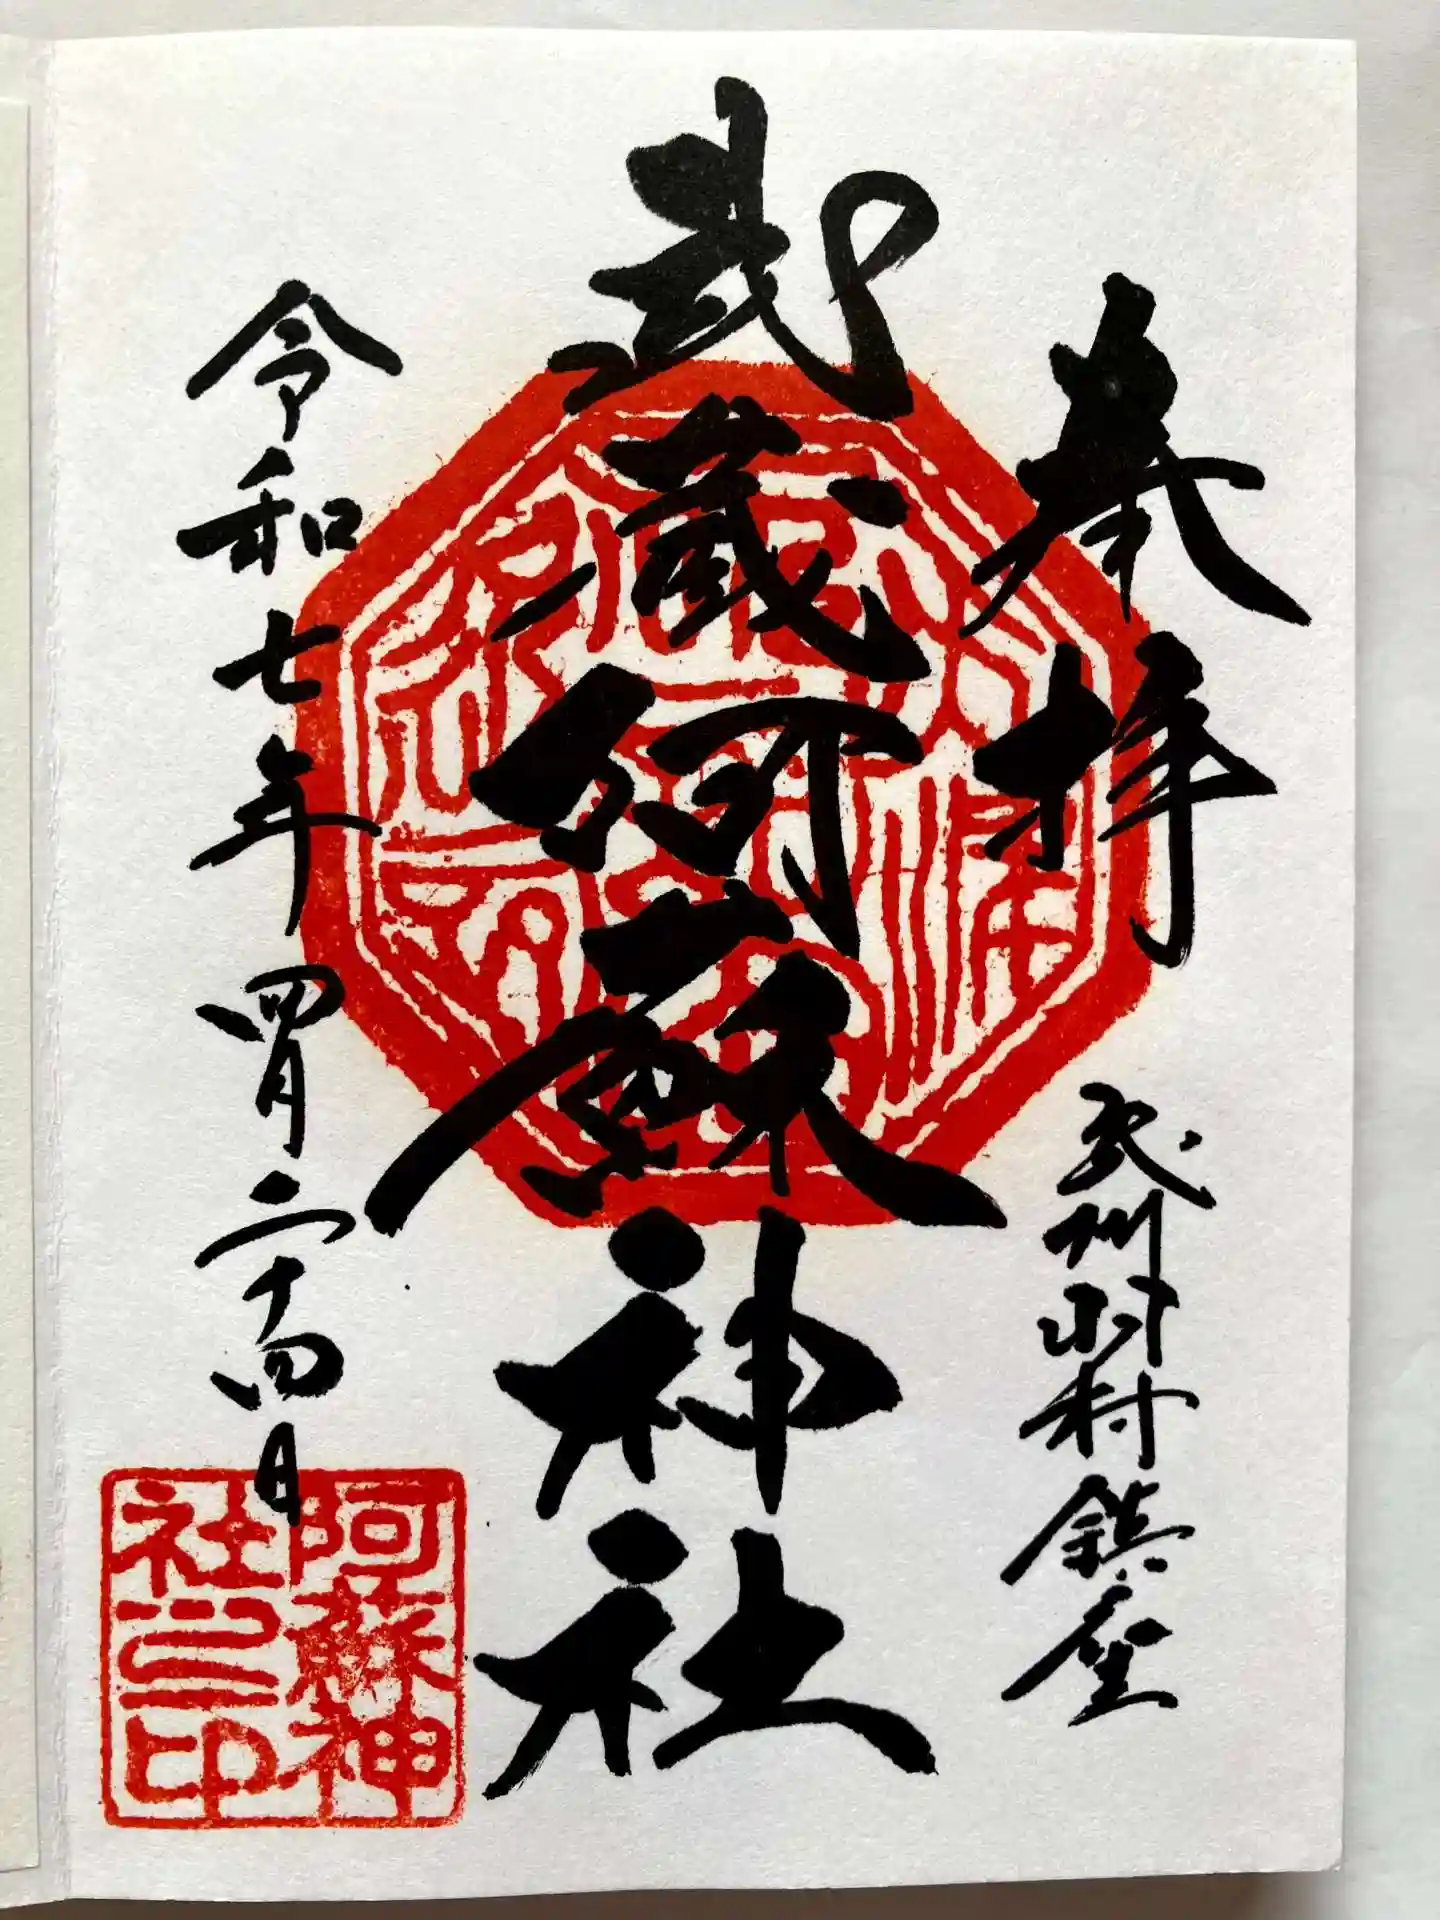 奉拝
武州羽村鎮座
武蔵阿蘇神社
令和七年四月二十四日
阿蘇神
社之印